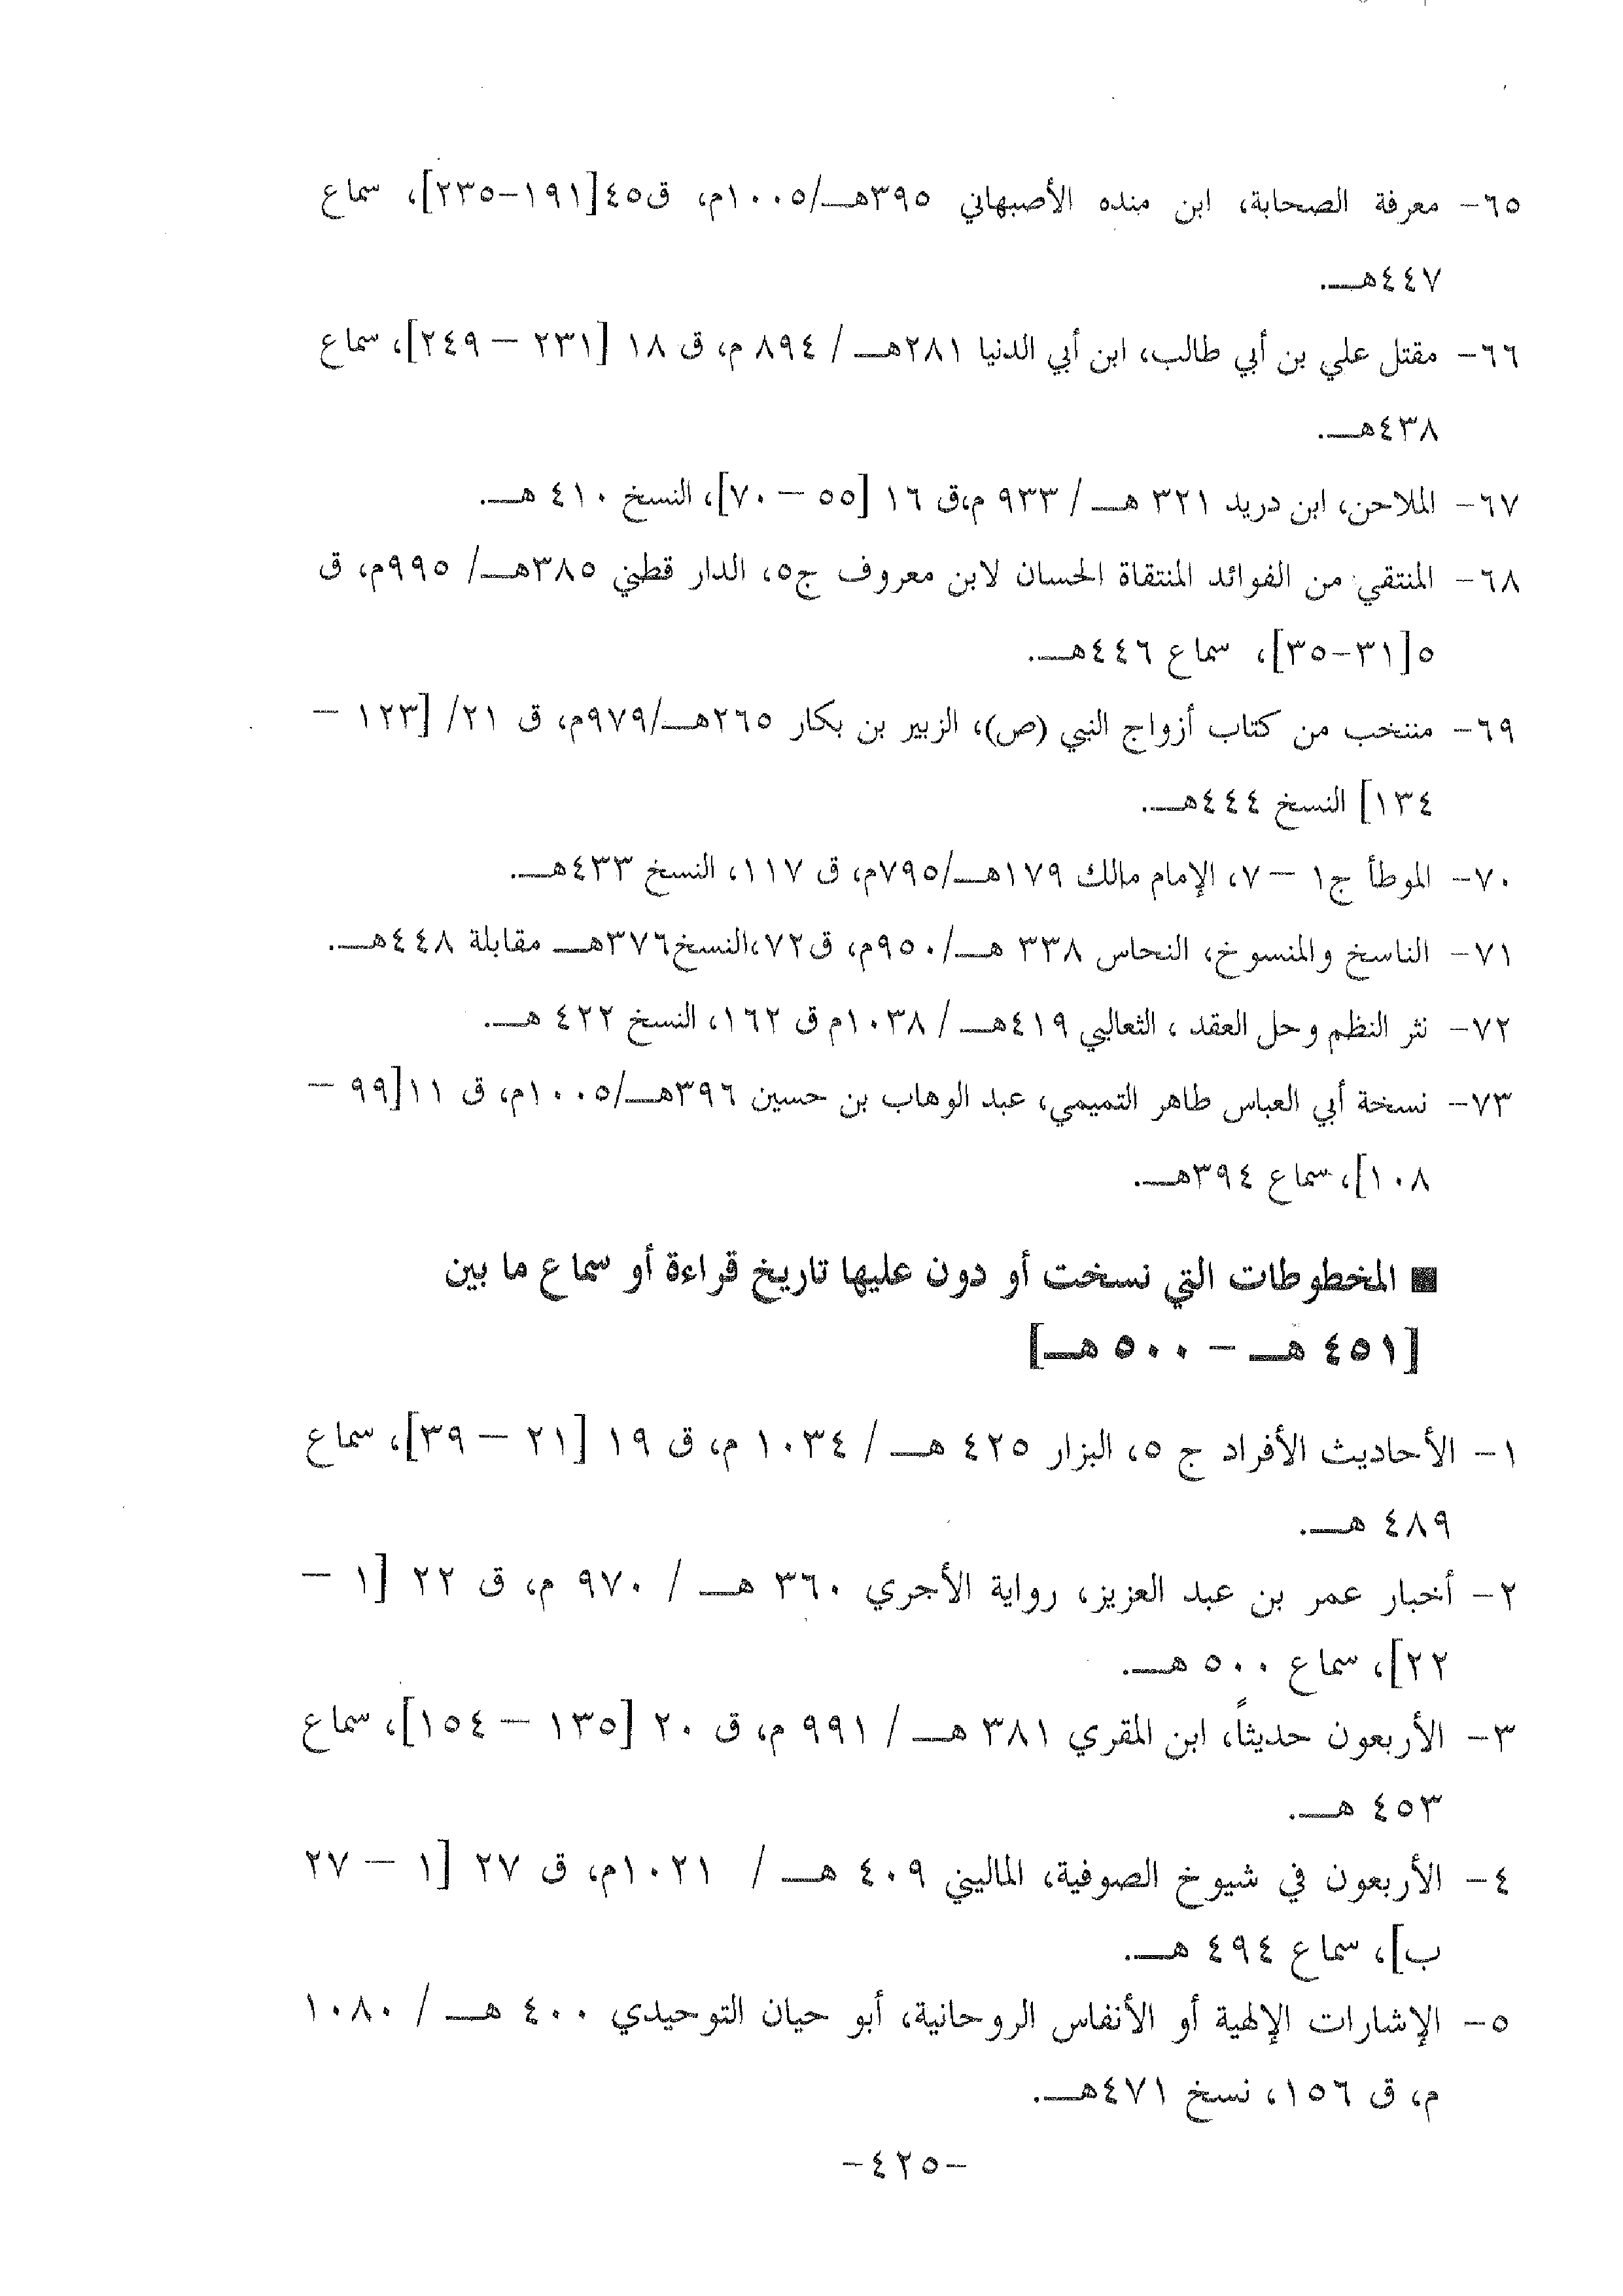 ٦٥- معرفة الصحابة، ابن منده الأصبهاني ٣٩٥هـ/١٠٠٥م، ق٤٥[١٩١-٢٣٥]، سماع
٤٤٧هـ.
٦٦- مقتل علي بن أبي طالب، ابن أبي الدنيا ٢٨١هـ / ٨٩٤ م، ق ١٨ [٢٣١ – ٢٤٩]، سماع
٤٣٨هـ.
٦٧- الملاحن، ابن دريد ٣٢١ هـ / ٩٣٣ م،ق ١٦ [٥٥ – ٧٠]، النسخ ٤١٠ هـ.
٦٨- المنتقي من الفوائد المنتقاة الحسان لابن معروف ج٥، الدار قطني ٣٨٥هـ/ ٩٩٥م، ق
٥[٣١-٣٥]، سماع ٤٤٦هـ.
٦٩- منتخب من كتاب أزواج النبي (ص)، الزبير بن بكار ٢٦٥هـ/٩٧٩م، ق ٢١/ [١٢٣ –
١٣٤] النسخ ٤٤٤هـ.
٧٠- الموطأ ج١ – ٧، الإمام مالك ١٧٩هـ/٧٩٥م، ق ١١٧، النسخ ٤٣٣هـ.
٧١- الناسخ والمنسوخ، النحاس ٣٣٨ هـ/٩٥٠م، ق٧٢،النسخ٣٧٦هـ مقابلة ٤٤٨هـ.
٧٢- نثر النظم وحل العقد ، الثعالبي ٤١٩هـ / ١٠٣٨م ق ١٦٢، النسخ ٤٢٢ هـ.
٧٣- نسخة أبي العباس طاهر التميمي، عبد الوهاب بن حسين ٣٩٦هـ/١٠٠٥م، ق ١١[٩٩ –
١٠٨]، سماع ٣٩٤هـ.
■ المخطوطات التي نسخت أو دون عليها تاريخ قراءة أو سماع ما بين
[٤٥١ هـ – ٥٠٠ هـ]
١- الأحاديث الأفراد ج ٥، البزار ٤٢٥ هـ / ١٠٣٤ م، ق ١٩ [٢١ – ٣٩]، سماع
٤٨٩ هـ.
٢- أخبار عمر بن عبد العزيز، رواية الأجري ٣٦٠ هـ / ٩٧٠ م، ق ٢٢ [١ –
٢٢]، سماع ٥٠٠ هـ.
٣- الأربعون حديثاً، ابن المقري ٣٨١ هـ / ٩٩١ م، ق ٢٠ [١٣٥ – ١٥٤]، سماع
٤٥٣ هـ.
٤- الأربعون في شيوخ الصوفية، الماليني ٤٠٩ هـ / ١٠٢١م، ق ٢٧ [١ – ٢٧
ب]، سماع ٤٩٤ هـ.
٥- الإشارات الإلهية أو الأنفاس الروحانية، أبو حيان التوحيدي ٤٠٠ هـ / ١٠٨٠
م، ق ١٥٦، نسخ ٤٧١هـ.
-٤٢٥-